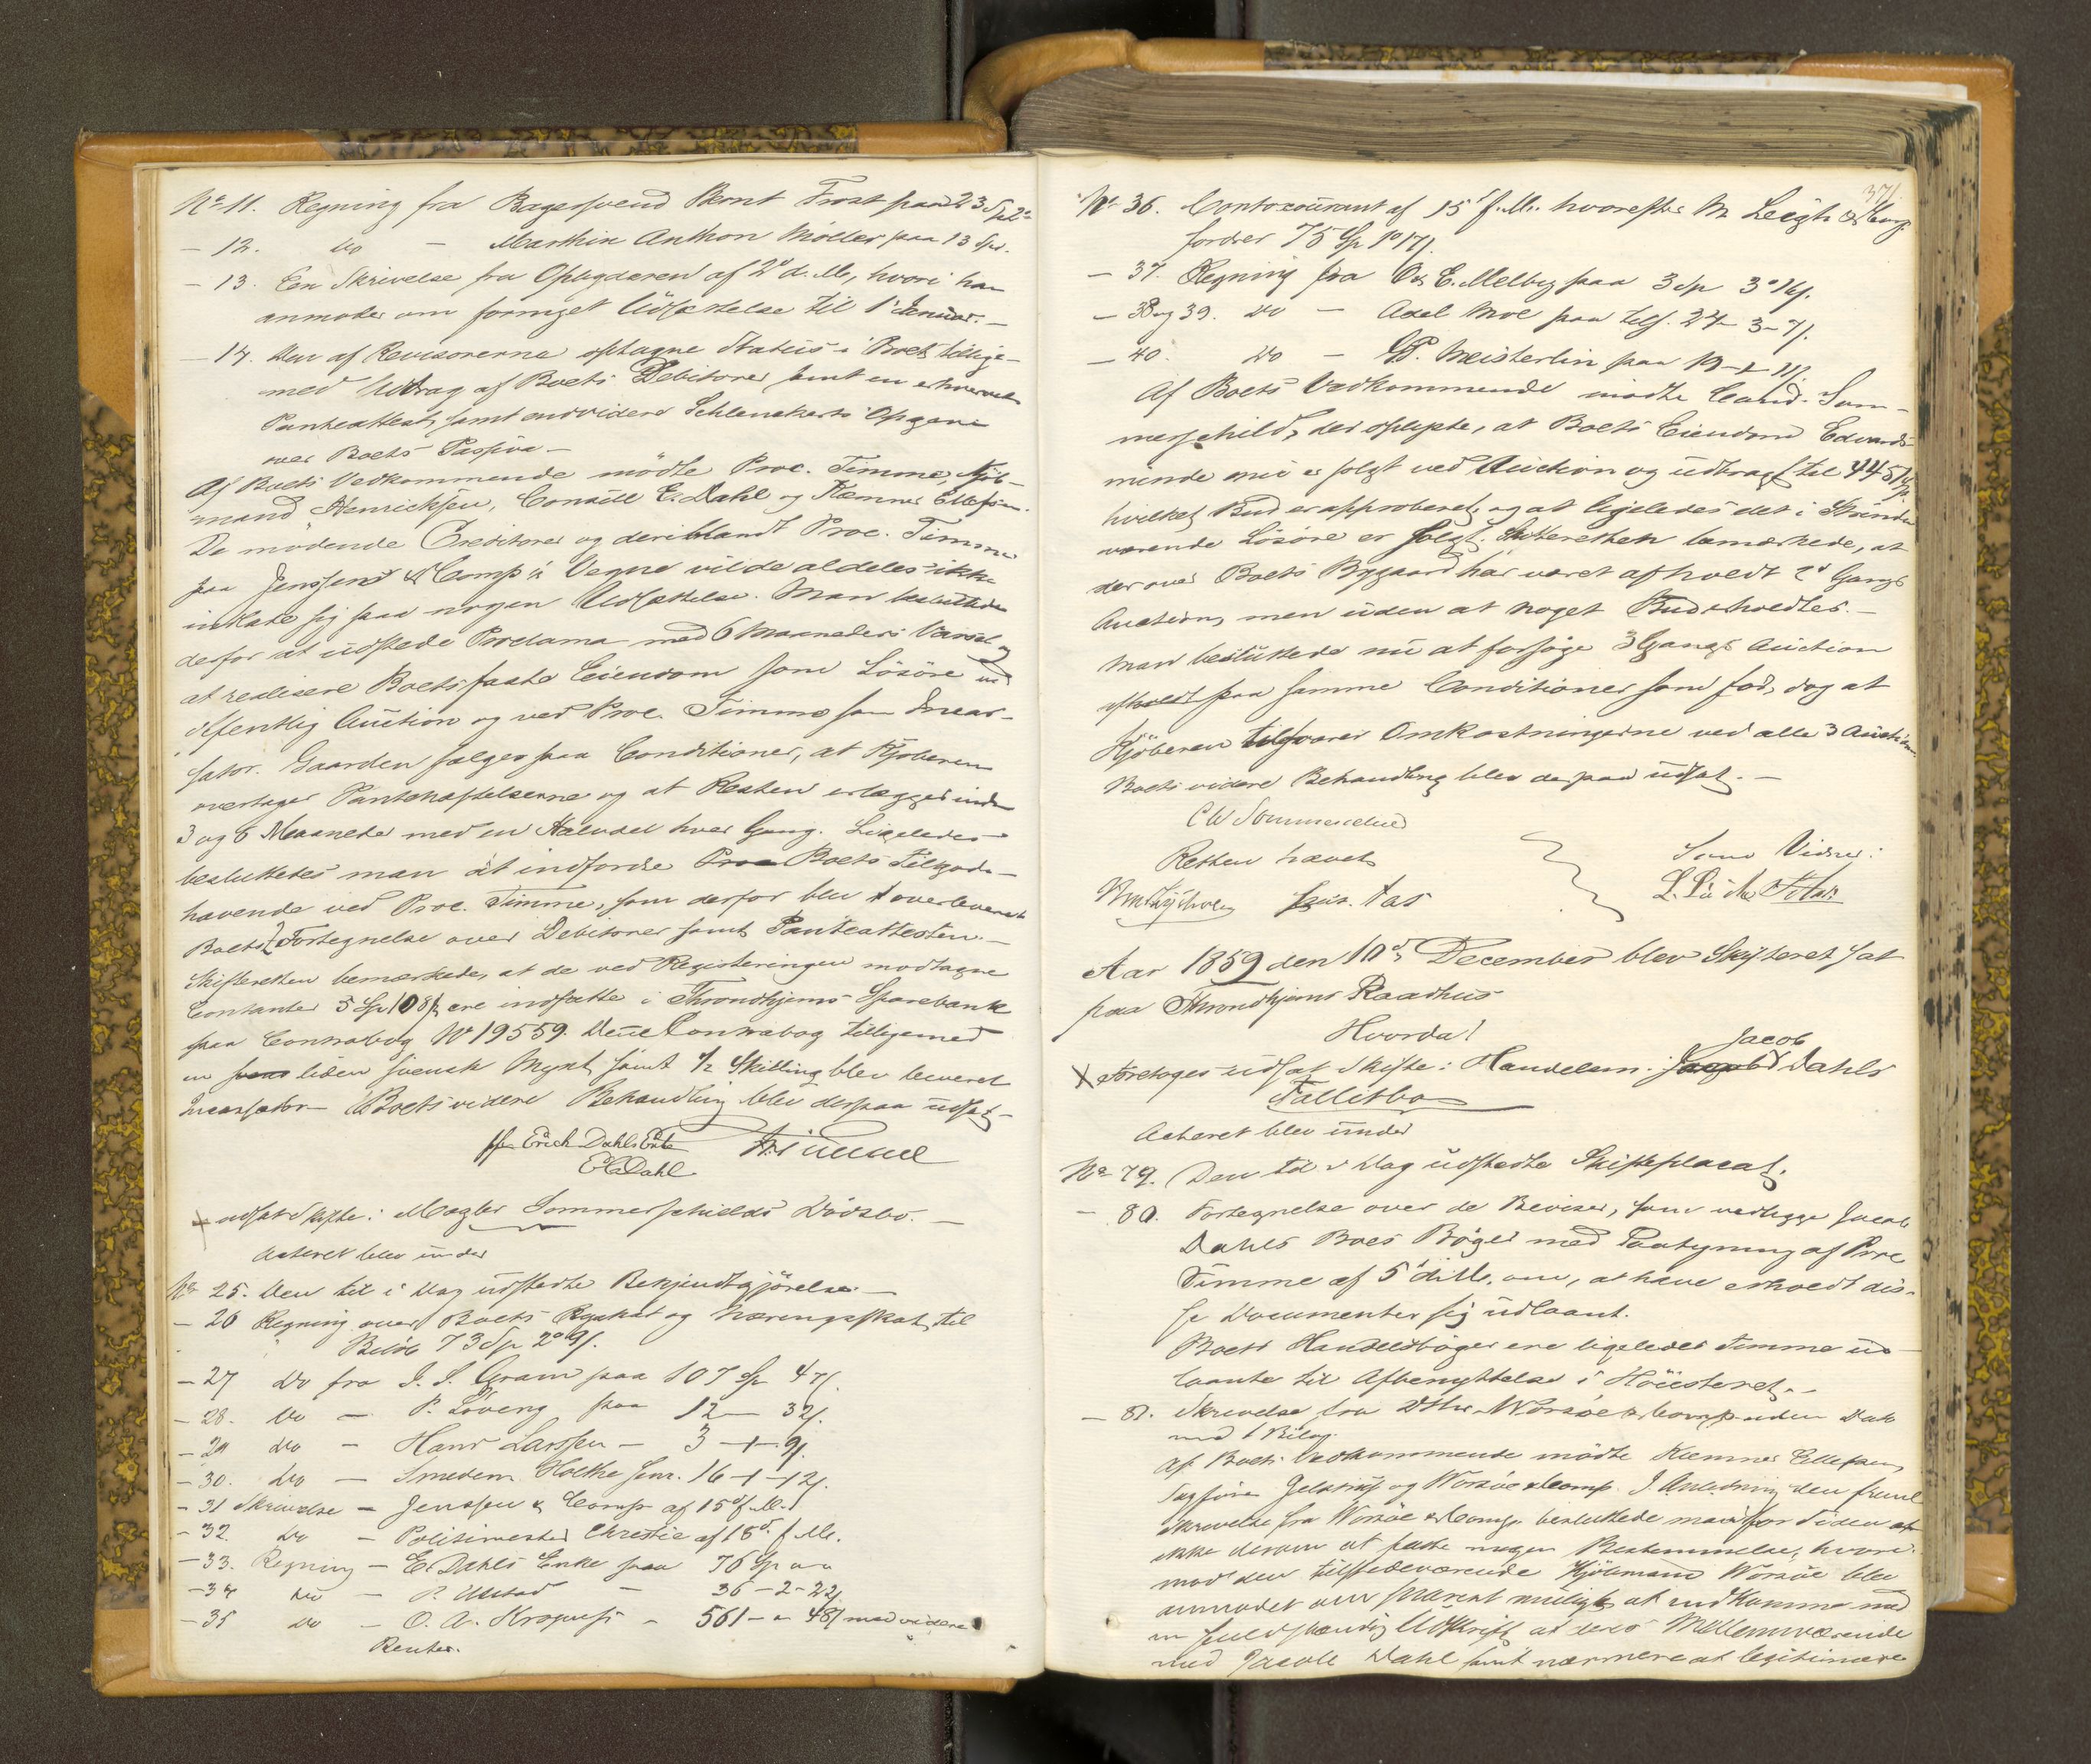 No 11. Regning fra Bagersvend Bernt Frost paa 23 Sp 2
- 12. do - Marthin Anthon Møller paa 13 Spd.
- 13. En Skrivelse fra Opbyderen af 2d d. M., hvori han
anmoder om fornyet Udsættelse til 1 Januar. -
- 14. Den af Revisorerne optagne Status i Boet tillige-
med Uddrag af Boets Debitorer samt en erhvervet
Panteattest, samt endvidere Schlenckerts Opgave
over Boets Passiva -
Af Boets Vedkommende mødte Proc. Timme, Kjøb-
mand Henrichsen, Consull E. Dahl og Kæmner Ellefsen.
De mødende Creditorer og deriblandt Proc. Timme
paa Jenssens & Comp's Vegne vilde aldeles ikke
indlade sig paa nogen Udsættelse. Man besluttede
derfor at udstede Proclama med 6 Maaneders Varsel og
at realisere Boets faste Eiendom som Løsøre ved
offentlig Auction og ved Proc. Timme som Incas-
sator. Gaarden sælges paa Conditioner, at Kjøberen
overtager Pantehæftelserne og at Resten erlægges inden
3 og 6 Maaneder med en Halvdel hver Gang. Ligeledes
besluttedes man at indfordre Boets Tilgode-
havende ved Proc. Timme, som derfor blev overleveret
Boets Fortegnelse over Debitorer samt Panteattesten. -
Skifteretten bemærkede, at de ved Registeringen modtagne
Contanter 5 Sp 108 s ere indsatte i Throndhjems Sparebank
paa Contrabog No 19559. Denne Contrabog tilligemed
en liden svensk Mynt samt 1/2 Skilling blev leveret
Incassator - Boets videre Behandling blev derpaa udsat -
pp Erich Dahls Enke
E A Dahl
Timme
udsat Skifte: Mægler Sommerschields Dødsbo. -
Acteret blev under
No 25. Den til i Dag udstedte Bekjendtgjørelse -
- 26 Regning over Boets Byskat og Næringsskat, til
Beløb 73 Sp 2 19 s.
- 27 do fra J. S. Gram paa 107 Sp 47 s.
- 28. do - P. Løveng paa 12 - 32 s.
- 29 do - Hans Larssen - 3 - 1 - 9 s.
- 30. do - Smedem. Holthe senr. 16 - 1 - 12 s.
- 31 Skrivelse - Jenssen & Comp af 15d f. M.
- 32. do - Politimester Christie af 18d f. M.
- 33. Regning - E. Dahls Enke paa 76 Sp
- 34 do - P. Ulstad - 36 - 2 - 22 s.
- 35 do - O. A. - 561 - 48 s med videre
Renter.
371.
No 36. Contocourant af 15 f. M. hvorefter M. Leigh & Comp
fordrer 75 Sp 1 17 s.
- 37. Regning fra O. E. Melby paa 3 Sp 3 16 s.
- 38 og 39. do - Axel Moe paa tils. 24 - 3 - 7 s.
- 40. do - P. Meisterlin paa 19 - 1 - 11 s.
Af Boets Vedkommende mødte Cand. Som-
merschield, der oplyste, at Boets Eiendom Edvards-
minde nu er solgt ved Auction og udbragt til 445 Sp.
hvilket Bud er approberet, og at ligeledes det i Strinden
værende Løsøre er solgt. Skifteretten bemærkede, at
der over Boets Bygaard har været afholdt 2d Gangs
Auction, men uden at noget Bud erholdtes. -
Man besluttede nu at forsøge 3 Gangs Auction
afholdt paa samme Conditioner som før, dog at
Kjøberen tilsvarer Omkostningerne ved alle 3 Auctioner
Boets videre Behandling blev derpaa udsat. -
C W Sommerschield
Retten hævet
Som Vidner:
Aar 1859 den 10d December blev Skifteret sat
paa Throndhjems Raadhus
Hvorda!
Foretoges udsat Skifte: Handelsm. Jacob Dahls
Fallitbo
Acteret blev under
No 79. Den til i Dag udstedte Skifteplacat.
- 80. Fortegnelse over de Beviser, som vedligge Jacob
Dahls Boes Bøger med Paategning af Proc
Timme af 5 d. M. om, at have erholdt dis-
se Documenter sig udlaant.
Boets Handelsbøger ere ligeledes Timme ud-
laante til Afbenyttelse i Høiesteret. -
- 81. Skrivelse fra DHrr. Worsøe & Comp uden Dato
med 1 Bilag.
Af Boets Vedkommende mødte Kæmner Ellefsen,
Sagfører Jelstrup og Worsøe & Comp. I Anledning den fremlagte
Skrivelse fra Worsøe & Comp. besluttede man for Tiden
ikke derom at fatte nogen Bestemmelse, hvori-
mod den tilstedeværende Kjøbmand Worsøe blev
anmodet om snarest muligt at indkomme med
en fuldstændig Udskrift af deres Mellemværende
med Jacob Dahl samt nærmere at legitimere